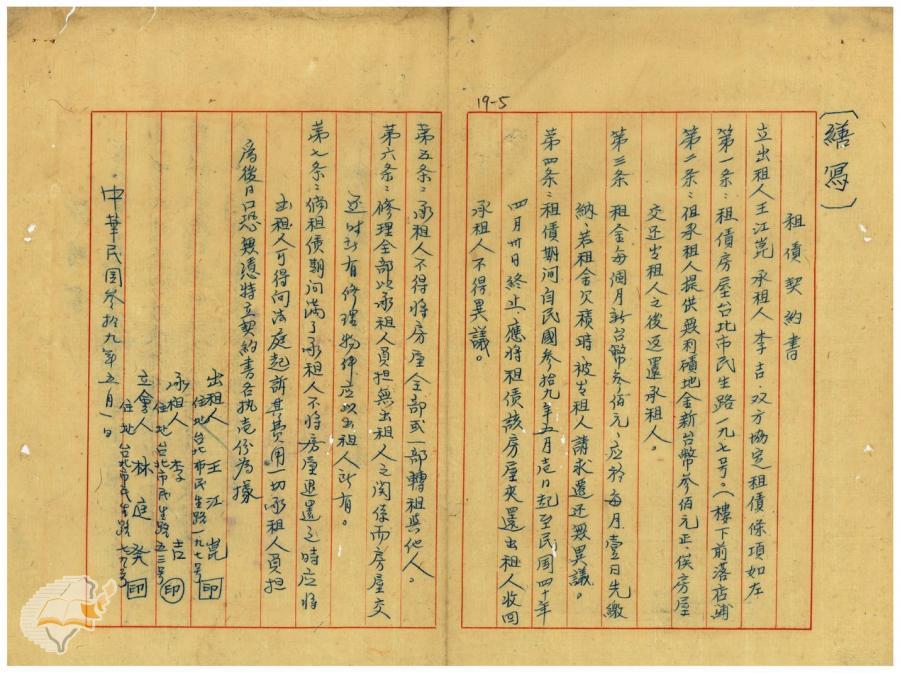 〔繕寫〕
19-5
租借契約書
立出租人王江崑 承租人 李吉、双方協定租借條項如左
第一条：租借房屋台北市民生路一九七号。(樓下前落店舖
第二条：但承租人提供無利磧地金新台幣叁佰元正、俟房屋
交还出租人之後返還承租人。
第三条 租金每個月新台幣叁佰元、应於每月壹日先繳
納、若租金欠積時、被出租人請求遷还無異議。
第四条：租借期间自民國叁拾九年五月壱日起至民國四十年
四月卅日終止、應將租借該房屋交還出租人收回
承租人不得異議。
第五条：承租人不得将房屋全部或一部轉租與他人。
第六条：修理全部以承租人負担無出租人之関係而房屋交
还時若有修理物件应以出租人所有。
第七条：倘租借期间満了承租人不将房屋退還之時应将
出租人可得向法庭起訴其費用一切承租人負担
為後日口恐無憑特立契約書各执壱份為據
中華民国叁拾九年五月一日
出租人 王江崑 印
住地 台北市民生路一九七号
承租人 李吉 印
住地 台北市民生路五三号
立會人 林庭癸 印
住地 台北市民生路七九号